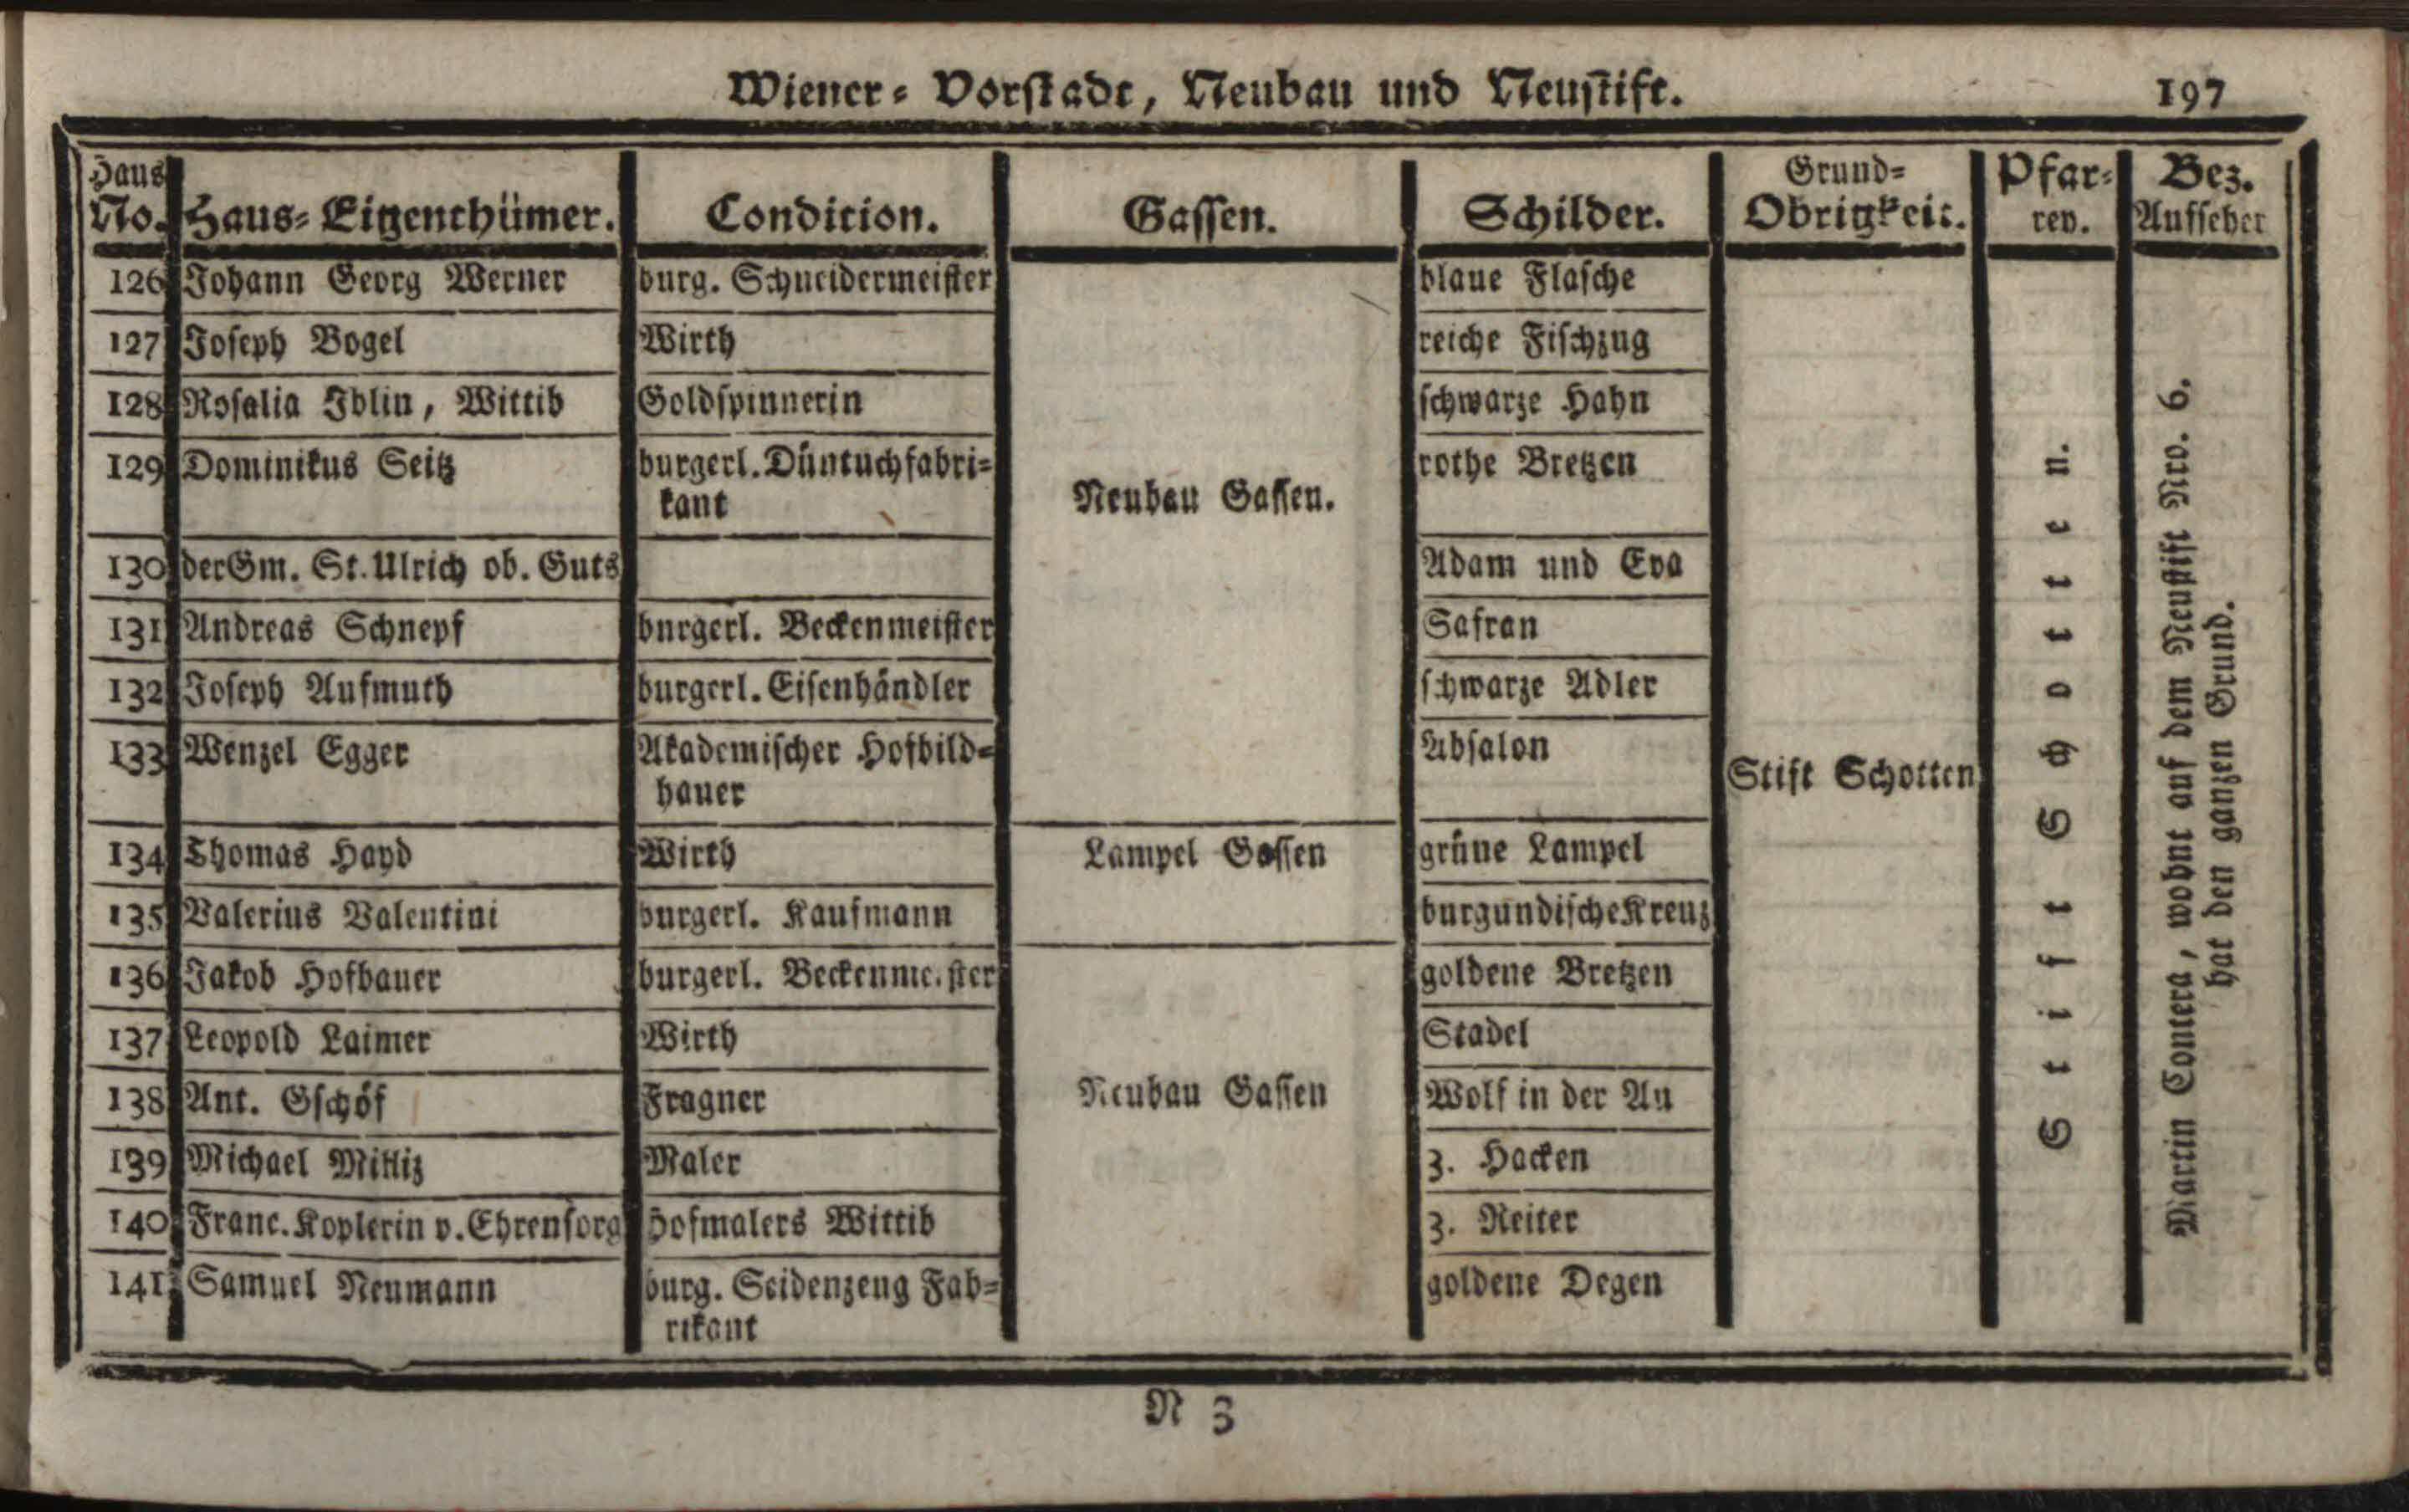 Wiener-Vorstadt, Neubau und Neustift.
197
Haus No.
Haus-Eigenthümer.
Condition.
Gassen.
Schilder.
Grund-Obrigkeit.
Pfar-rey.
Bez. Aufseher
126 Johann Georg Werner burg. Schneidermeister blaue Flasche
127 Joseph Vogel Wirth reiche Fischzug
128 Rosalia Iblin, Wittib Goldspinnerin schwarze Hahn
129 Dominikus Seitz burgerl. Düntuchfabri- rothe Bretzen
kant
Neubau Gassen.
130 der Gm. St. Ulrich ob. Guts Adam und Eva
131 Andreas Schnepf burgerl. Beckenmeister Safran
132 Joseph Aufmuth burgerl. Eisenhändler schwarze Adler
133 Wenzel Egger Akademischer Hofbild- Absalon
hauer
Stift Schotten
134 Thomas Hayd Wirth Lampel Gassen grüne Lampel
135 Valerius Valentini burgerl. Kaufmann burgundische Kreuz
136 Jakob Hofbauer burgerl. Beckenmeister goldene Bretzen
137 Leopold Laimer Wirth Stadel
138 Ant. Gschöf Fragner Neubau Gassen Wolf in der Au
139 Michael Maler 3. Hacken
140 Franc. Koplerin v. Ehrensorg Hofmalers Wittib 3. Reiter
141 Samuel Neumann burg. Seidenzeug Fab- goldene Degen
rikant
Stift Schotten.
Martin Contera, wohnt auf dem Neustift Nro. 6.
hat den ganzen Grund.
N 3